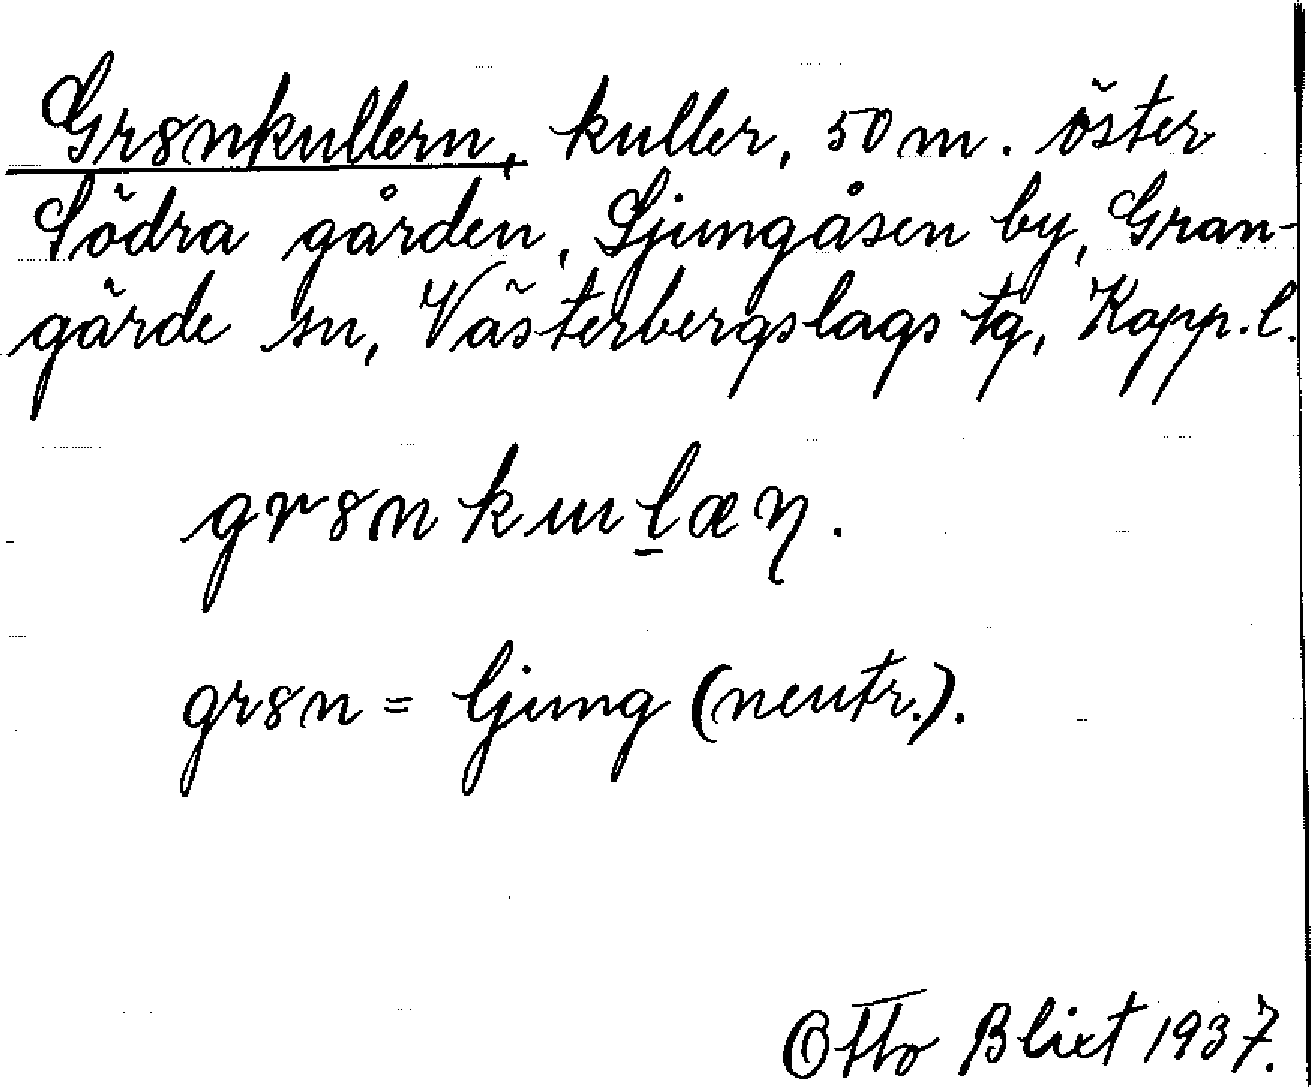 Gr8nkullern, kuller, 50 m. öster
Södra gården, Ljungåsen by, Gran-
gärde sn, Västerbergslags tg, Kopp. l.
gr8nkuḻæɳ.
gr8n = ljung (neutr.).
Otto Blixt 1937.